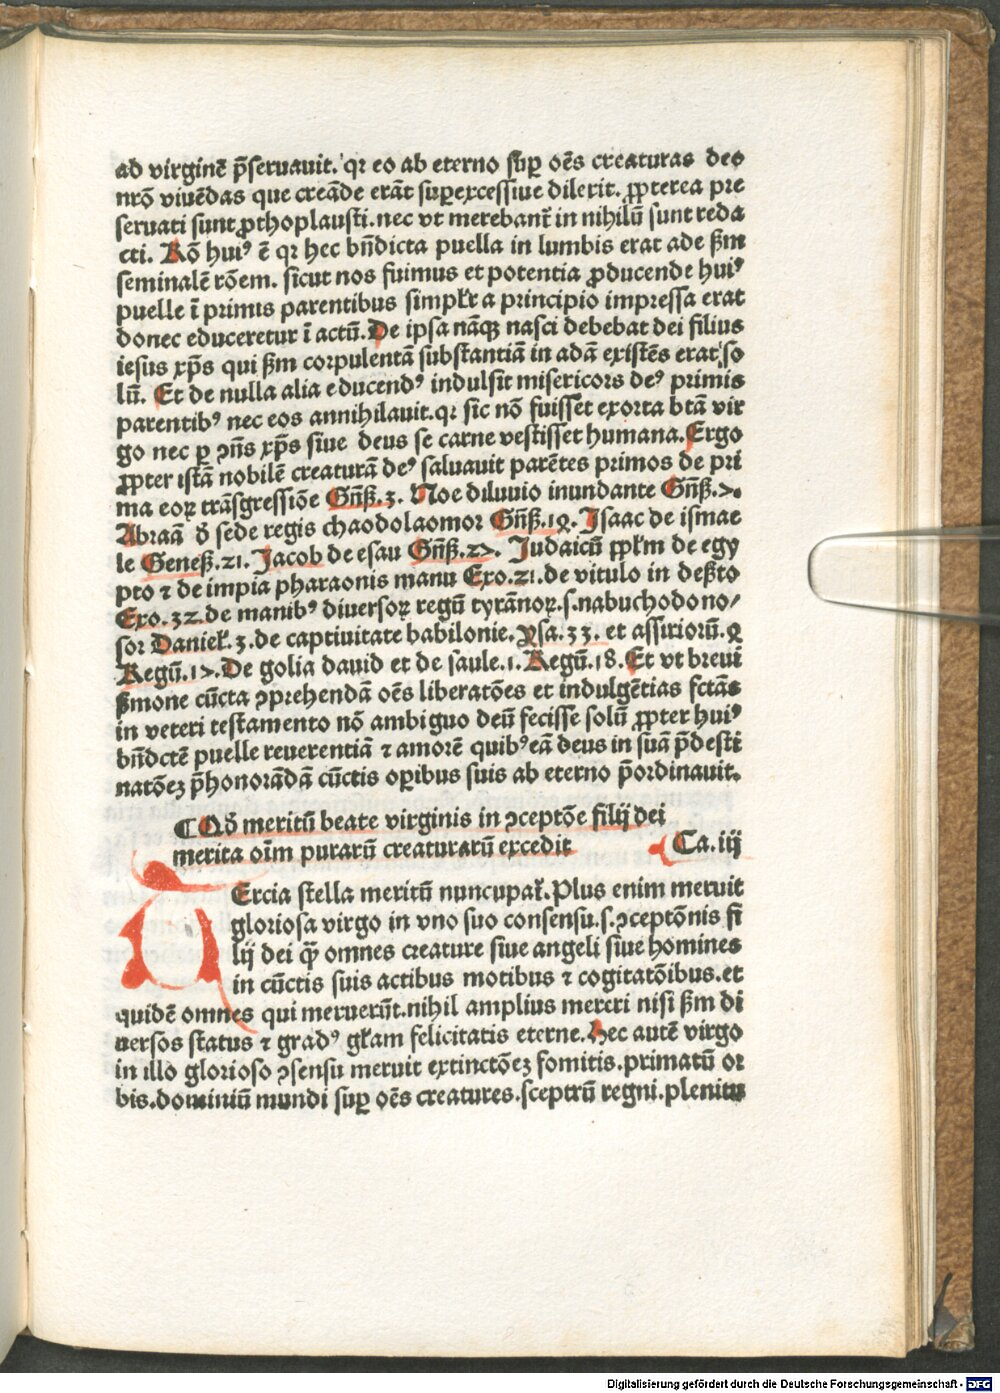 ad virginē p̄seruauit. qꝛ eo ab eterno suꝑ oēs creaturas deo
nrō viuēdas que creāde erāt suꝑexcessiue dilexit. ꝓpterea pre
seruati sunt ꝓthoplausti. nec vt merebant᷑ in nihilū sunt reda
cti. Rō huiꝰ ē qꝛ hec bn̄dicta puella in lumbis erat ade ẜm
seminalē rōem. sicut nos fuimus et potentia ꝓducende huiꝰ
puelle ī primis parentibus simpłr a principio impressa erat
donec educeretur ī actū. De ipsa nāqꝫ nasci debebat dei filius
iesus xp̄s qui ẜm corpulentā substantiā in adā existēs erat, so
lū. Et de nulla alia educendꝰ indulsit misericors deꝰ primis
parentibꝰ nec eos annihilauit. qꝛ sic nō fuisset exorta btā vir
go nec ꝑ ꝯn̄s xp̄s siue deus se carne vestisset humana. Ergo
ꝓpter istā nobilē creaturā deꝰ saluauit parētes primos de pri
ma eoꝝ trāsgressiōe Gn̄ß. 3. Noe diluuio inundante Gn̄ß. 7.
Abraā ꝺ̄ sede regis chaodolaomor Gn̄ß. 14. Isaac de ismae
le Geneß. 21. Jacob de esau Gn̄ß. 27. Judaicū ppłm de egy
pto ⁊ de impia pharaonis manu Exo. 21. de vitulo in deẜto
Exo. 32. de manibꝰ diuersoꝝ regū tyrānoꝝ. s. nabuchodono/
sor Danieł. 3. de captiuitate babilonie. psa. 33. et assirioꝝ. 4
Regū. 17. De golia dauid et de saule. 1. Regū. 18. Et vt breui
ẜmone cūcta ꝯprehendā oēs liberatōes et indulgētias fctās
in veteri testamento nō ambiguo deū fecisse solū ꝓpter huiꝰ
bn̄dctē puelle reuerentiā ⁊ amorē quibꝰ eā deus in suā p̄desti
natōeꝫ p̄honorādā cūctis oꝑibus suis ab eterno p̄ordinauit.
¶ Qꝺ̄ meritū beate virginis in ꝯceptōe filij dei
merita oīm puraꝝ creaturaꝝ excedit Ca. iij
TErcia stella meritū nuncupat᷑. Plus enim meruit
gloriosa virgo in vno suo consensu. s. ꝯceptōnis fi
lij dei q̄ꝫ omnes creature siue angeli siue homines
in cūctis suis actibus motibus ⁊ cogitatōibus. et
quidē omnes qui meruerūt. nihil amplius mereri nisi ẜm di
uersos status ⁊ gradꝰ głam felicitatis eterne. Hec autē virgo
in illo glorioso ꝯsensu meruit extinctōeꝫ fomitis. primatū or
bis. dominiū mundi suꝑ oēs creatures. sceptrū regni. plenitu
Digitalisierung gefördert durch die Deutsche Forschungsgemeinschaft - DFG